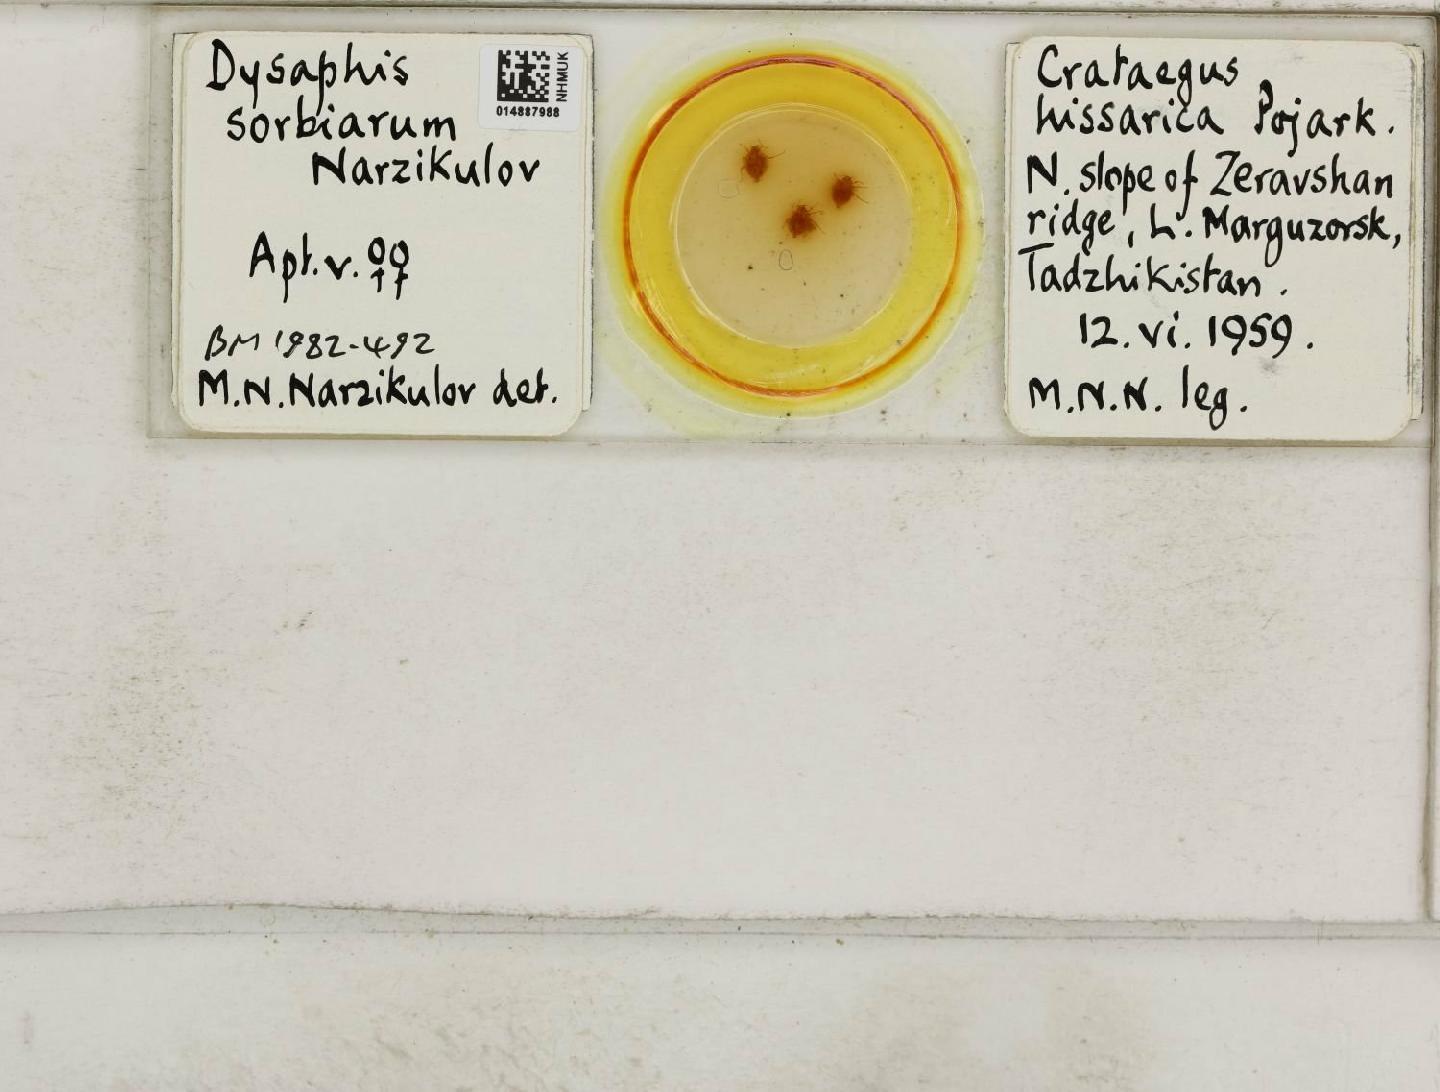 Dysaphis
sorbiarum
Narzikulov
NHMUK
014887988
Apt. v. ♀♀
BM 1982-492
M.N. Narzikulov det.
Crataegus
hissarica Pojark.
N. slope of Zeravshan
ridge, L. Marguzorsk,
Tadzhikistan.
12. vi. 1959.
M.N.N. leg.